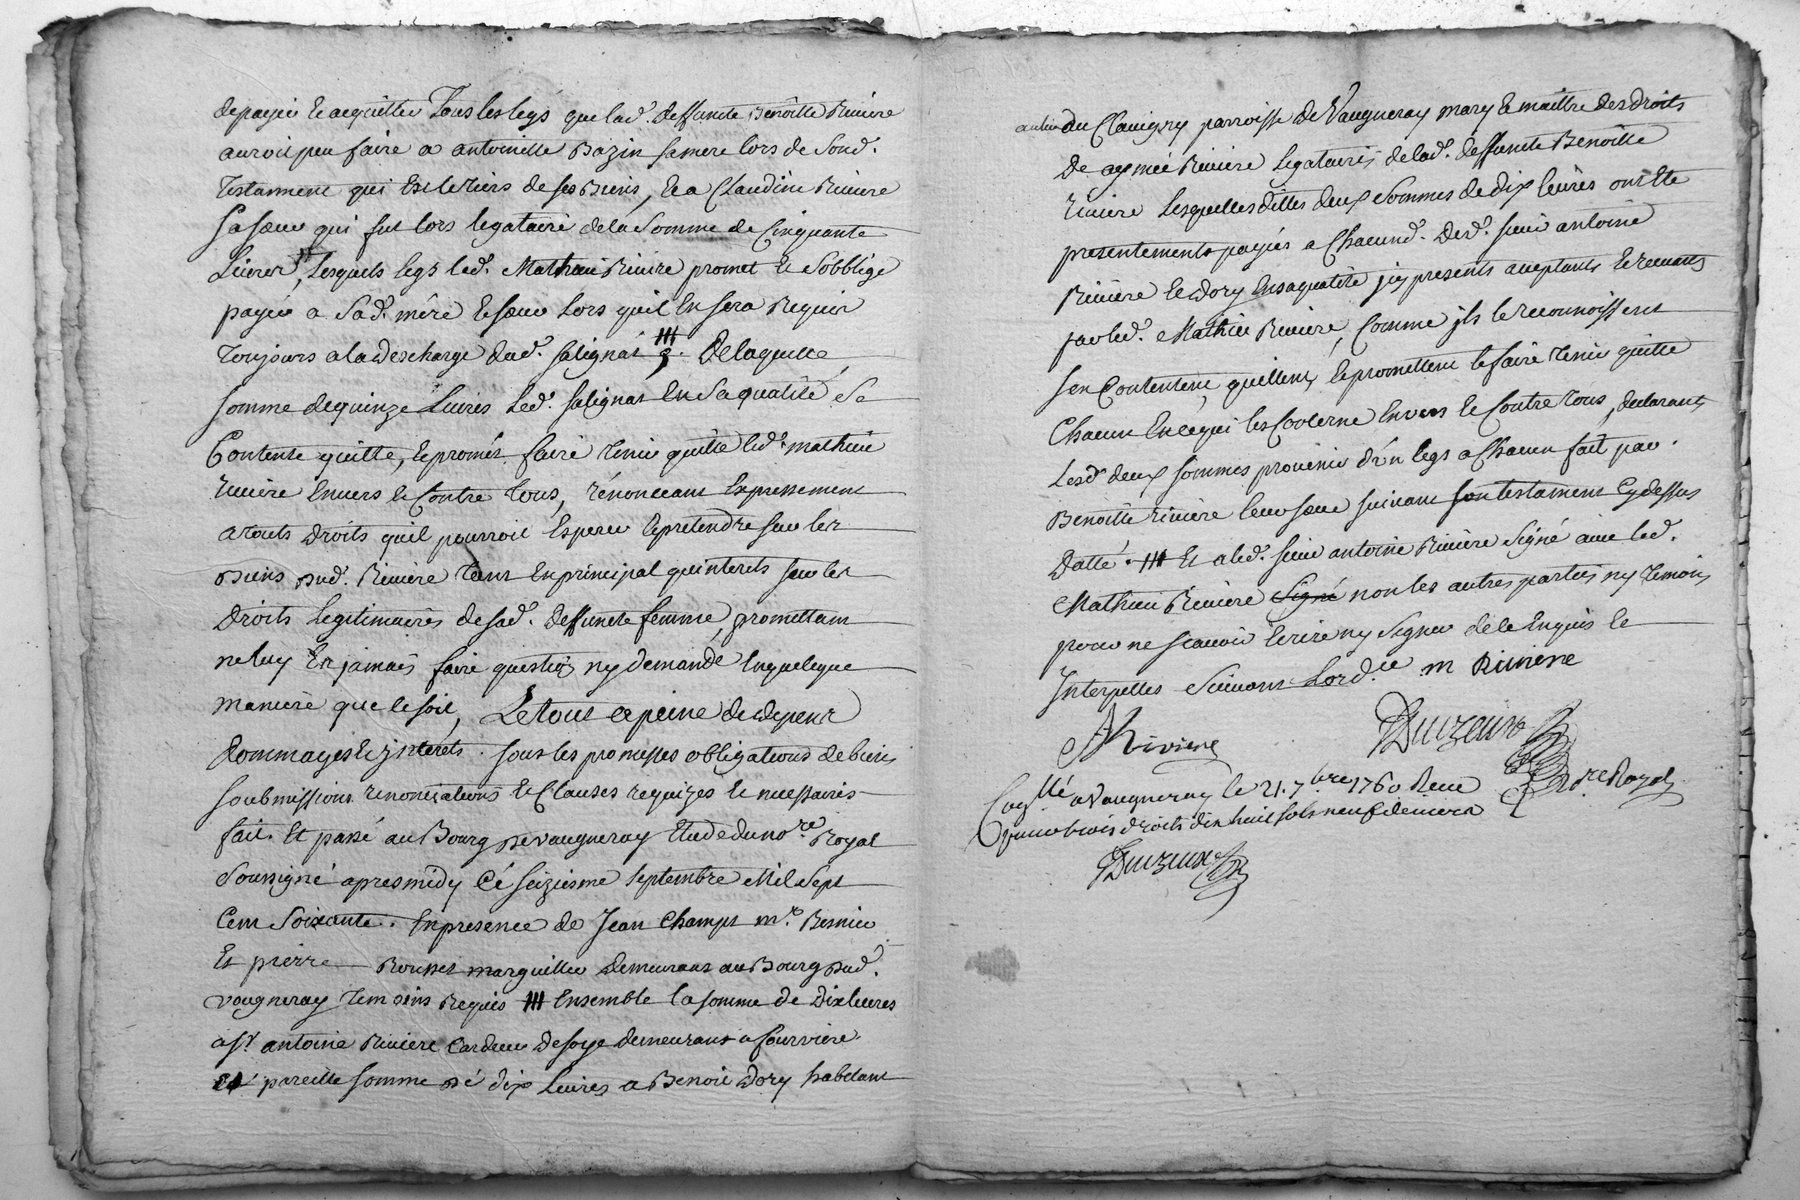 depayer et acquitter Tous les legs que lad. deffuncte Benoitte Riviere
auroit peu faire a antoinette Bazin sa mere lors de Sond.
Testament qui Est le tiers de ses Biens, et a Claudine Riviere
sa sœur qui fut lors legataire de la Somme de Cinquante
Livres, lesquels legs led. Mathieu Riviere promet et Sobblige
payer a Sad. mére et sœur lors quil En sera Requis
Toujours a la descharge dud. salignat ///. De laquelle
somme de quinze Livres led. salignat En Sa qualité Se
Contente quitte, et promet faire tenir quitte led. mathieu
riviere Envers et Contre tous, rénonceant Expressement
a touts droits quil pourroit Esperer et pretendre sur les
Biens dud. Riviere tant En principal quinterets sur les
droits legitimaires de sad. deffuncte femme, promettant
ne luy En jamais faire question ny demande En quelque
maniere que ce soit, Le tout a peine de depens
dommages et jnterets. sous les promesses obligations de biens
soubmissions renonciations et Clauses requizes et necessaires
fait Et passé au Bourg de vaugneray Etude du no.re Royal
Soussigné apres midy Cé seizieme Septembre Mil Sept
Cent Soixante. En presence de Jean Champs m.e
Et pierre Rousset marguiller demeurants au Bourg dud.
vaugneray Temoins Requis /// Ensemble la somme de Dix livres
a sr. antoine Riviere Cardeur de soye demeurant a fourviere
et pareille somme dé dix Livres a Benoit dory habitant
au lieu du Clavigny parroisse de Vaugneray mary et maittre des droits
de aymée Riviere legataires de lad. deffuncte Benoitte
riviere lesquelles dittes deux Sommes de dix livres ont Eté
presentements payées a Chacund. Desd. sieur antoine
Riviere et dory En saqualité jcy presents acceptants et recevants
par led. Mathieu Riviere, Comme jls le reconnoissent
sen Contentent, quittent, et promettent le faire tenir quitte
Chacun En cequi les Concerne Envers et Contre tous, declarants
lesd. deux sommes provenir d'un legs a Chacun fait par
Benoitte riviere leur sœur suivant son testament Cydessus
datté. /// Et a led. sieur antoine Riviere signé avec led.
Mathieu Riviere Signé non les autres parties ny temoins
pour ne scavoir Ecrire ny Signer de ce Enquis et
Interpelles Suivant Lord.ce m Riviere
A Riviere
Duizeux
no.re Royal
Con.llé a vaugneray le 21. 7bre 1760 Recu
pour trois droits dix huit sols neuf deniers
Duizeux